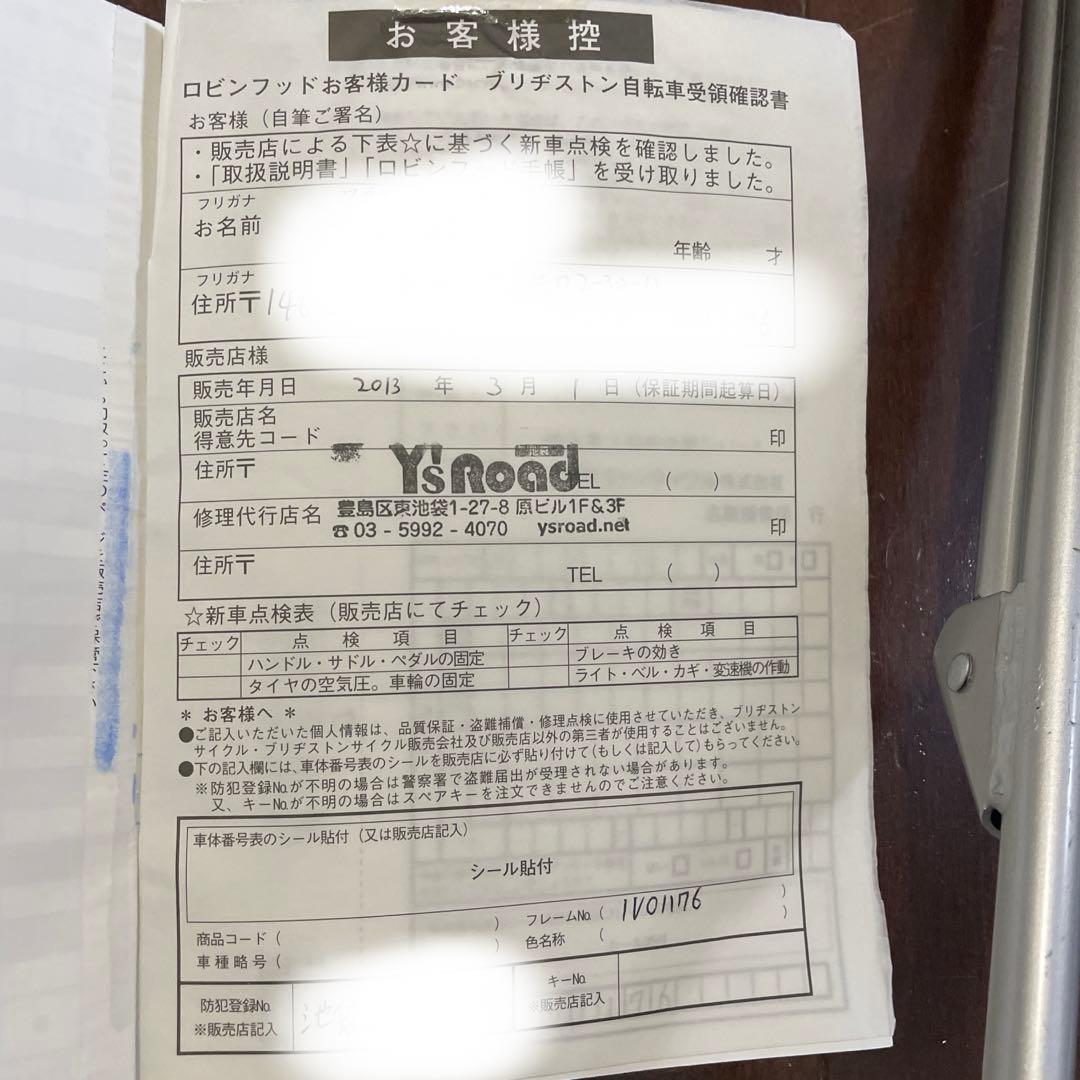 お客様控
ロビンフッドお客様カード　ブリヂストン自転車受領確認書
お客様（自筆ご署名）
・販売店による下表☆に基づく新車点検を確認しました。
・「取扱説明書」「ロビンフッド手帳」を受け取りました。
フリガナ
お名前
年齢　才
フリガナ
住所〒14
販売店様
販売年月日　2013 年 3 月 1 日（保証期間起算日）
販売店名
得意先コード　印
住所〒　TEL　（　）
Y'sRoad
豊島区東池袋1-27-8 原ビル1F&3F
修理代行店名　印
☎03-5992-4070　ysroad.net
住所〒　TEL　（　）
☆新車点検表（販売店にてチェック）
チェック　点検項目　チェック　点検項目
ハンドル・サドル・ペダルの固定　ブレーキの効き
タイヤの空気圧。車輪の固定　ライト・ベル・カギ・変速機の作動
＊ お客様へ ＊
●ご記入いただいた個人情報は、品質保証・盗難補償・修理点検に使用させていただき、ブリヂストン
サイクル・ブリヂストンサイクル販売会社及び販売店以外の第三者が使用することはございません。
●下の記入欄には、車体番号表のシールを販売店に必ず貼り付けて（もしくは記入して）もらってください。
※防犯登録No.が不明の場合は警察署で盗難届出が受理されない場合があります。
又、キーNo.が不明の場合はスペアキーを注文できませんのでご注意ください。
車体番号表のシール貼付（又は販売店記入）
シール貼付
商品コード（　）　フレームNo.（1V01176）
車種略号（　）　色名称　（　）
防犯登録No.
※販売店記入
キーNo.
※販売店記入